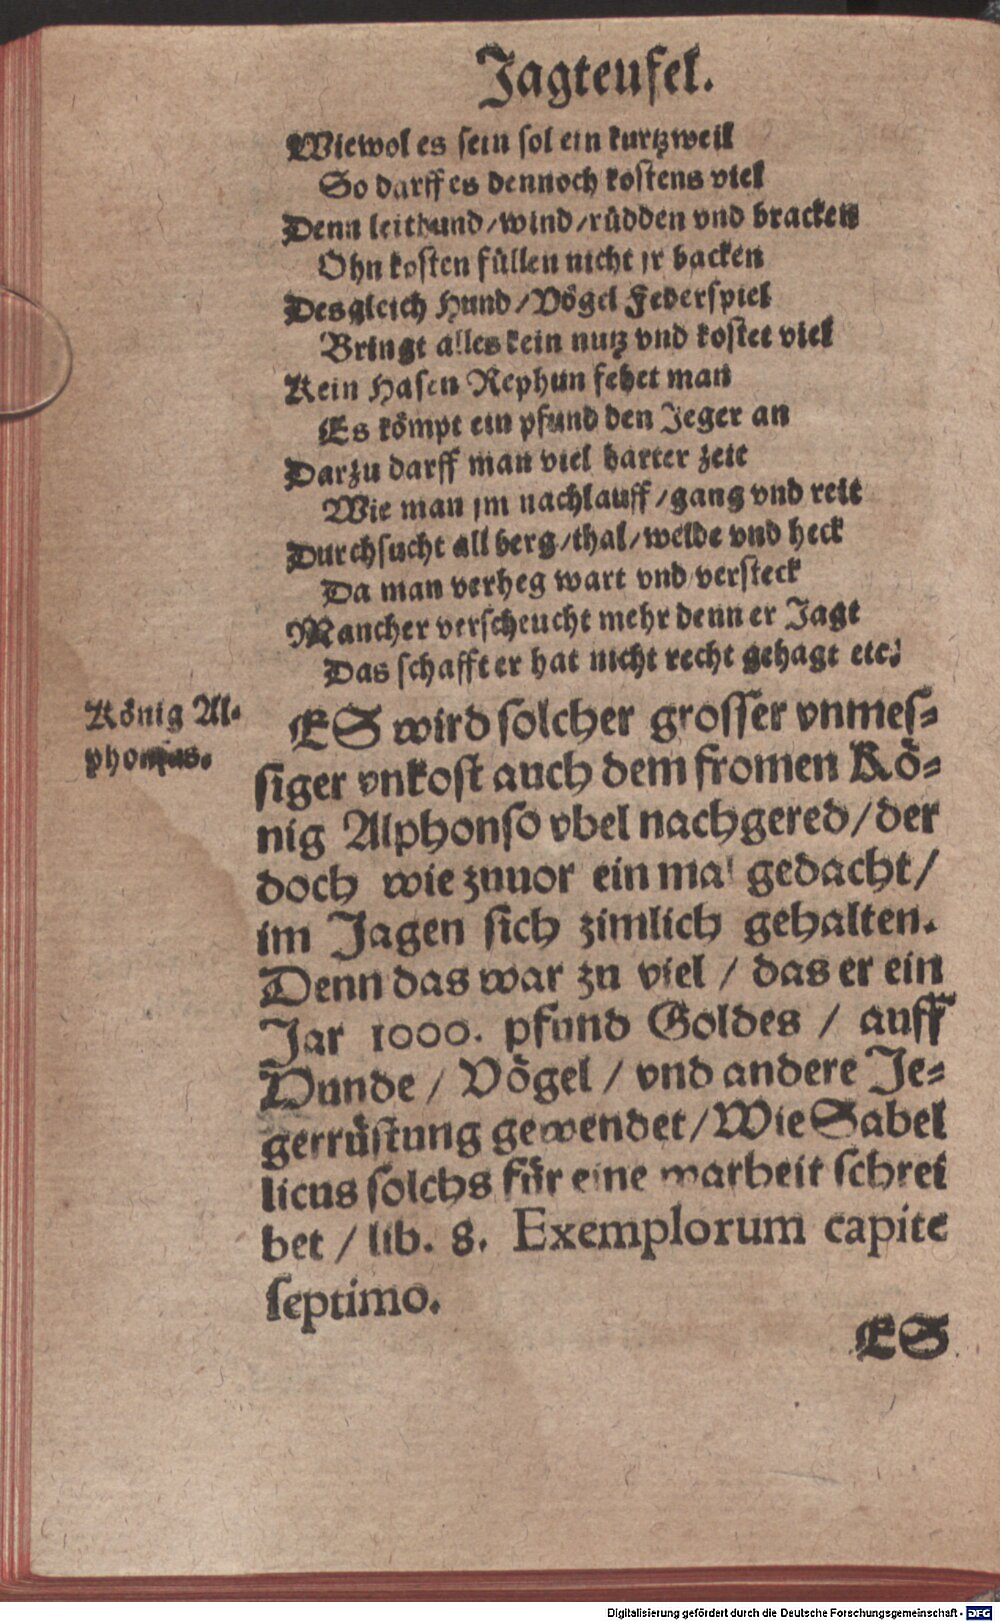 Jagteufel.
Wiewol es sein sol ein kurtzweil
So darff es dennoch kostens viel
Denn leithund/wind/rüdden vnd bracken
Ohn kosten füllen nicht jr backen
Desgleich Hund/Vögel Federspiel
Bringt alles kein nutz vnd kostet viel
Kein Hasen Rephun fehet man
Es kömpt ein pfund den Jeger an
Darzu darff man viel harter zeit
Wie man jm nachlauff/gang vnd reit
Durchsucht all berg/thal/welde vnd heck
Da man verheg wart vnd versteck
Mancher verscheucht mehr denn er Jagt
Das schafft er hat nicht recht gehagt etc.
König Al-
phonsus.
ES wird solcher grosser vnmes-
siger vnkost auch dem fromen Kö-
nig Alphonso vbel nachgered/der
doch wie zuuor ein mal gedacht/
im Jagen sich zimlich gehalten.
Denn das war zu viel / das er ein
Jar 1000. pfund Goldes / auff
Hunde / Vögel / vnd andere Je-
gerrüstung gewendet/Wie Sabel
licus solchs für eine warheit schrei
bet / lib. 8. Exemplorum capite
septimo.
ES
Digitalisierung gefördert durch die Deutsche Forschungsgemeinschaft - DFG